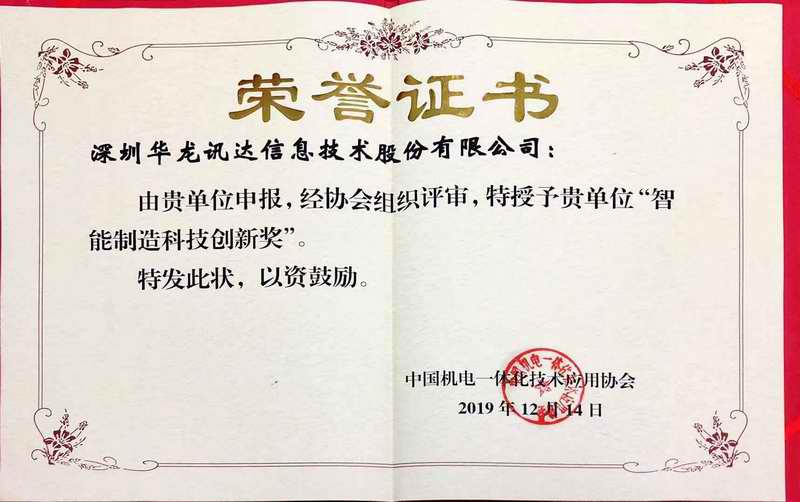 荣誉证书
深圳华龙讯达信息技术股份有限公司：
由贵单位申报，经协会组织评审，特授予贵单位“智
能制造科技创新奖”。
特发此状，以资鼓励。
中国机电一体化技术应用协会
2019 年 12 月 14 日